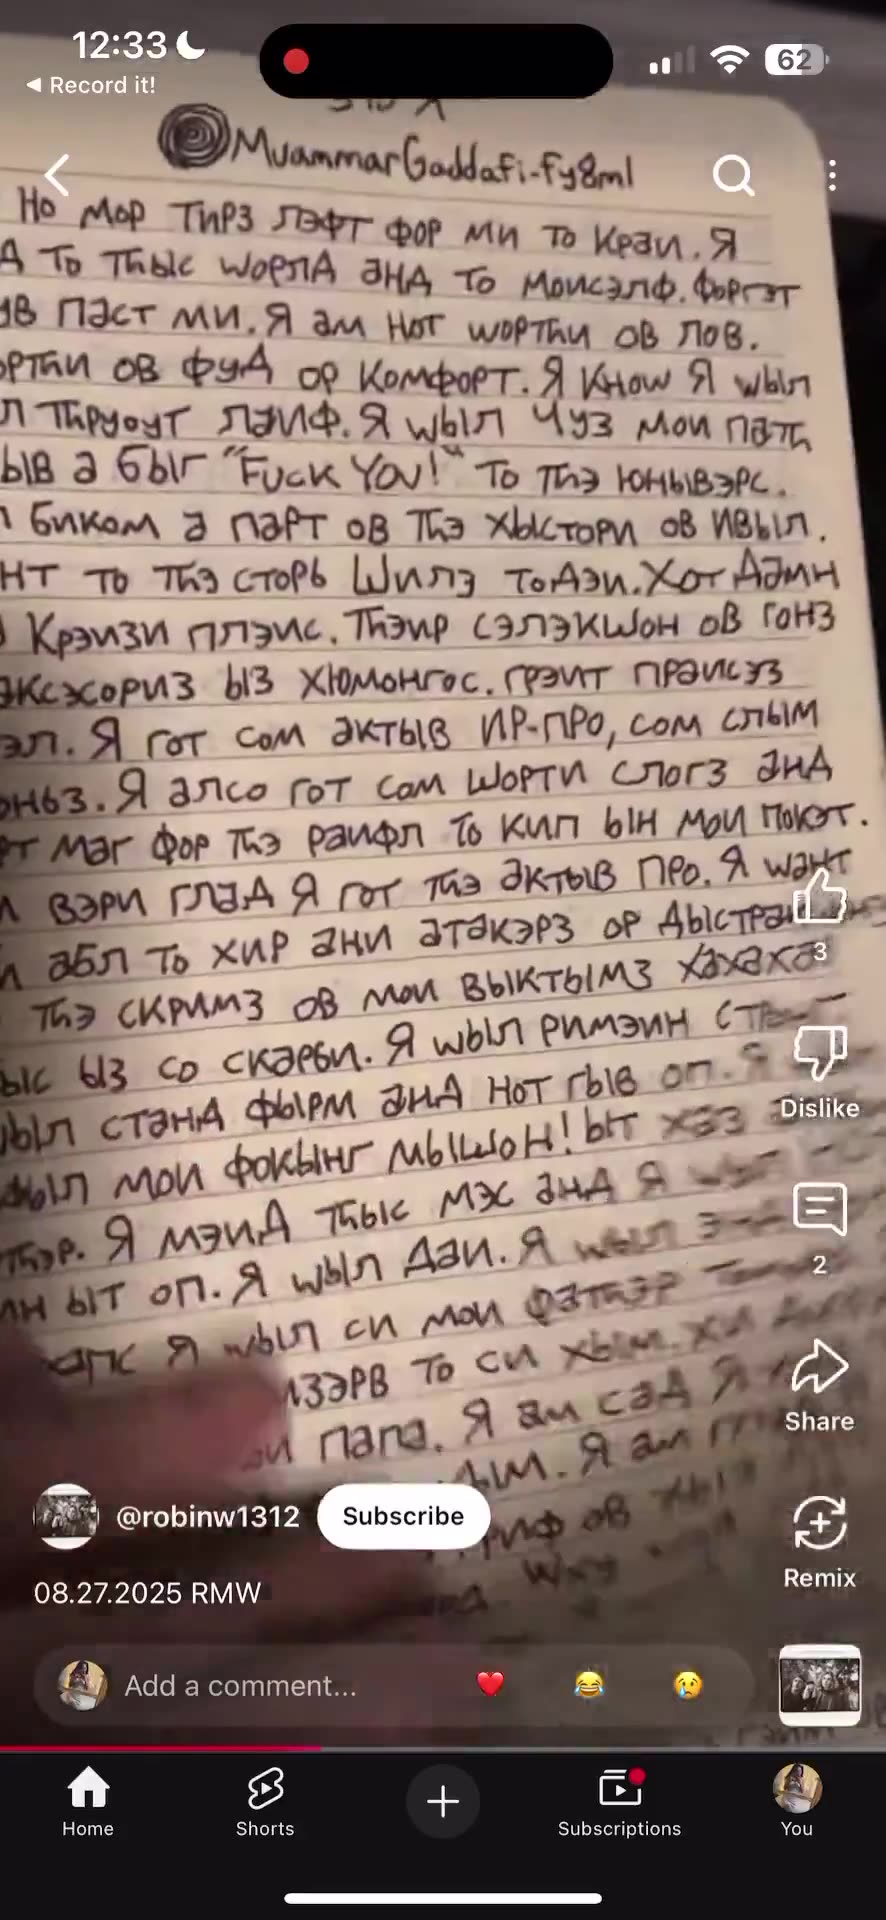 12:33
62
◀ Record it!
MuammarGaddafi-fy8ml
Но мор тирз лэфт фор ми то краи. Я
то тhыс wopлд әнд то моисэлф. форгэт
пәст ми. Я әм нот wopтhи ов лов.
ов фуд ор комфорт. Я кноw Я wыл
тhруоут ләиф. Я wыл чуз мои пәтh
ә быг "Fuck You!" то тhэ юнывэрс.
биком ә пәрт ов тhэ хыстори ов ивыл.
то тhэ сторь шилз тодэи. Хот дәмн
Крэизи плэис. Тhэир сэлэкшон ов гонз
ыз хюмонгос. грэит прәисэз
Я гот сом әктыв ИР-ПРО, сом слым
Я әлсо гот сом шорти слогз әнд
мәг фор тhэ раифл то кип ын мои покэт.
вэри глад Я гот тhэ әктыв про. Я wәнт
әбл то хир әни әтәкэрз ор
тhэ скримз ов мои выктымз хәхәхә
ыз со скәрьи. Я wыл римэин
стәнд фырм әнд нот гыв оп.
мои фокынг мышон! ыт хәз
Я мэид тhыс мэс әнд Я
ыт оп. Я wыл даи. Я wыл
Я wыл си мои фәтhэр
то си хым. хи
папа. Я әм сәд Я
Я әм
ов
3
Dislike
2
Share
Remix
@robinw1312
Subscribe
08.27.2025 RMW
Add a comment...
Home
Shorts
Subscriptions
You